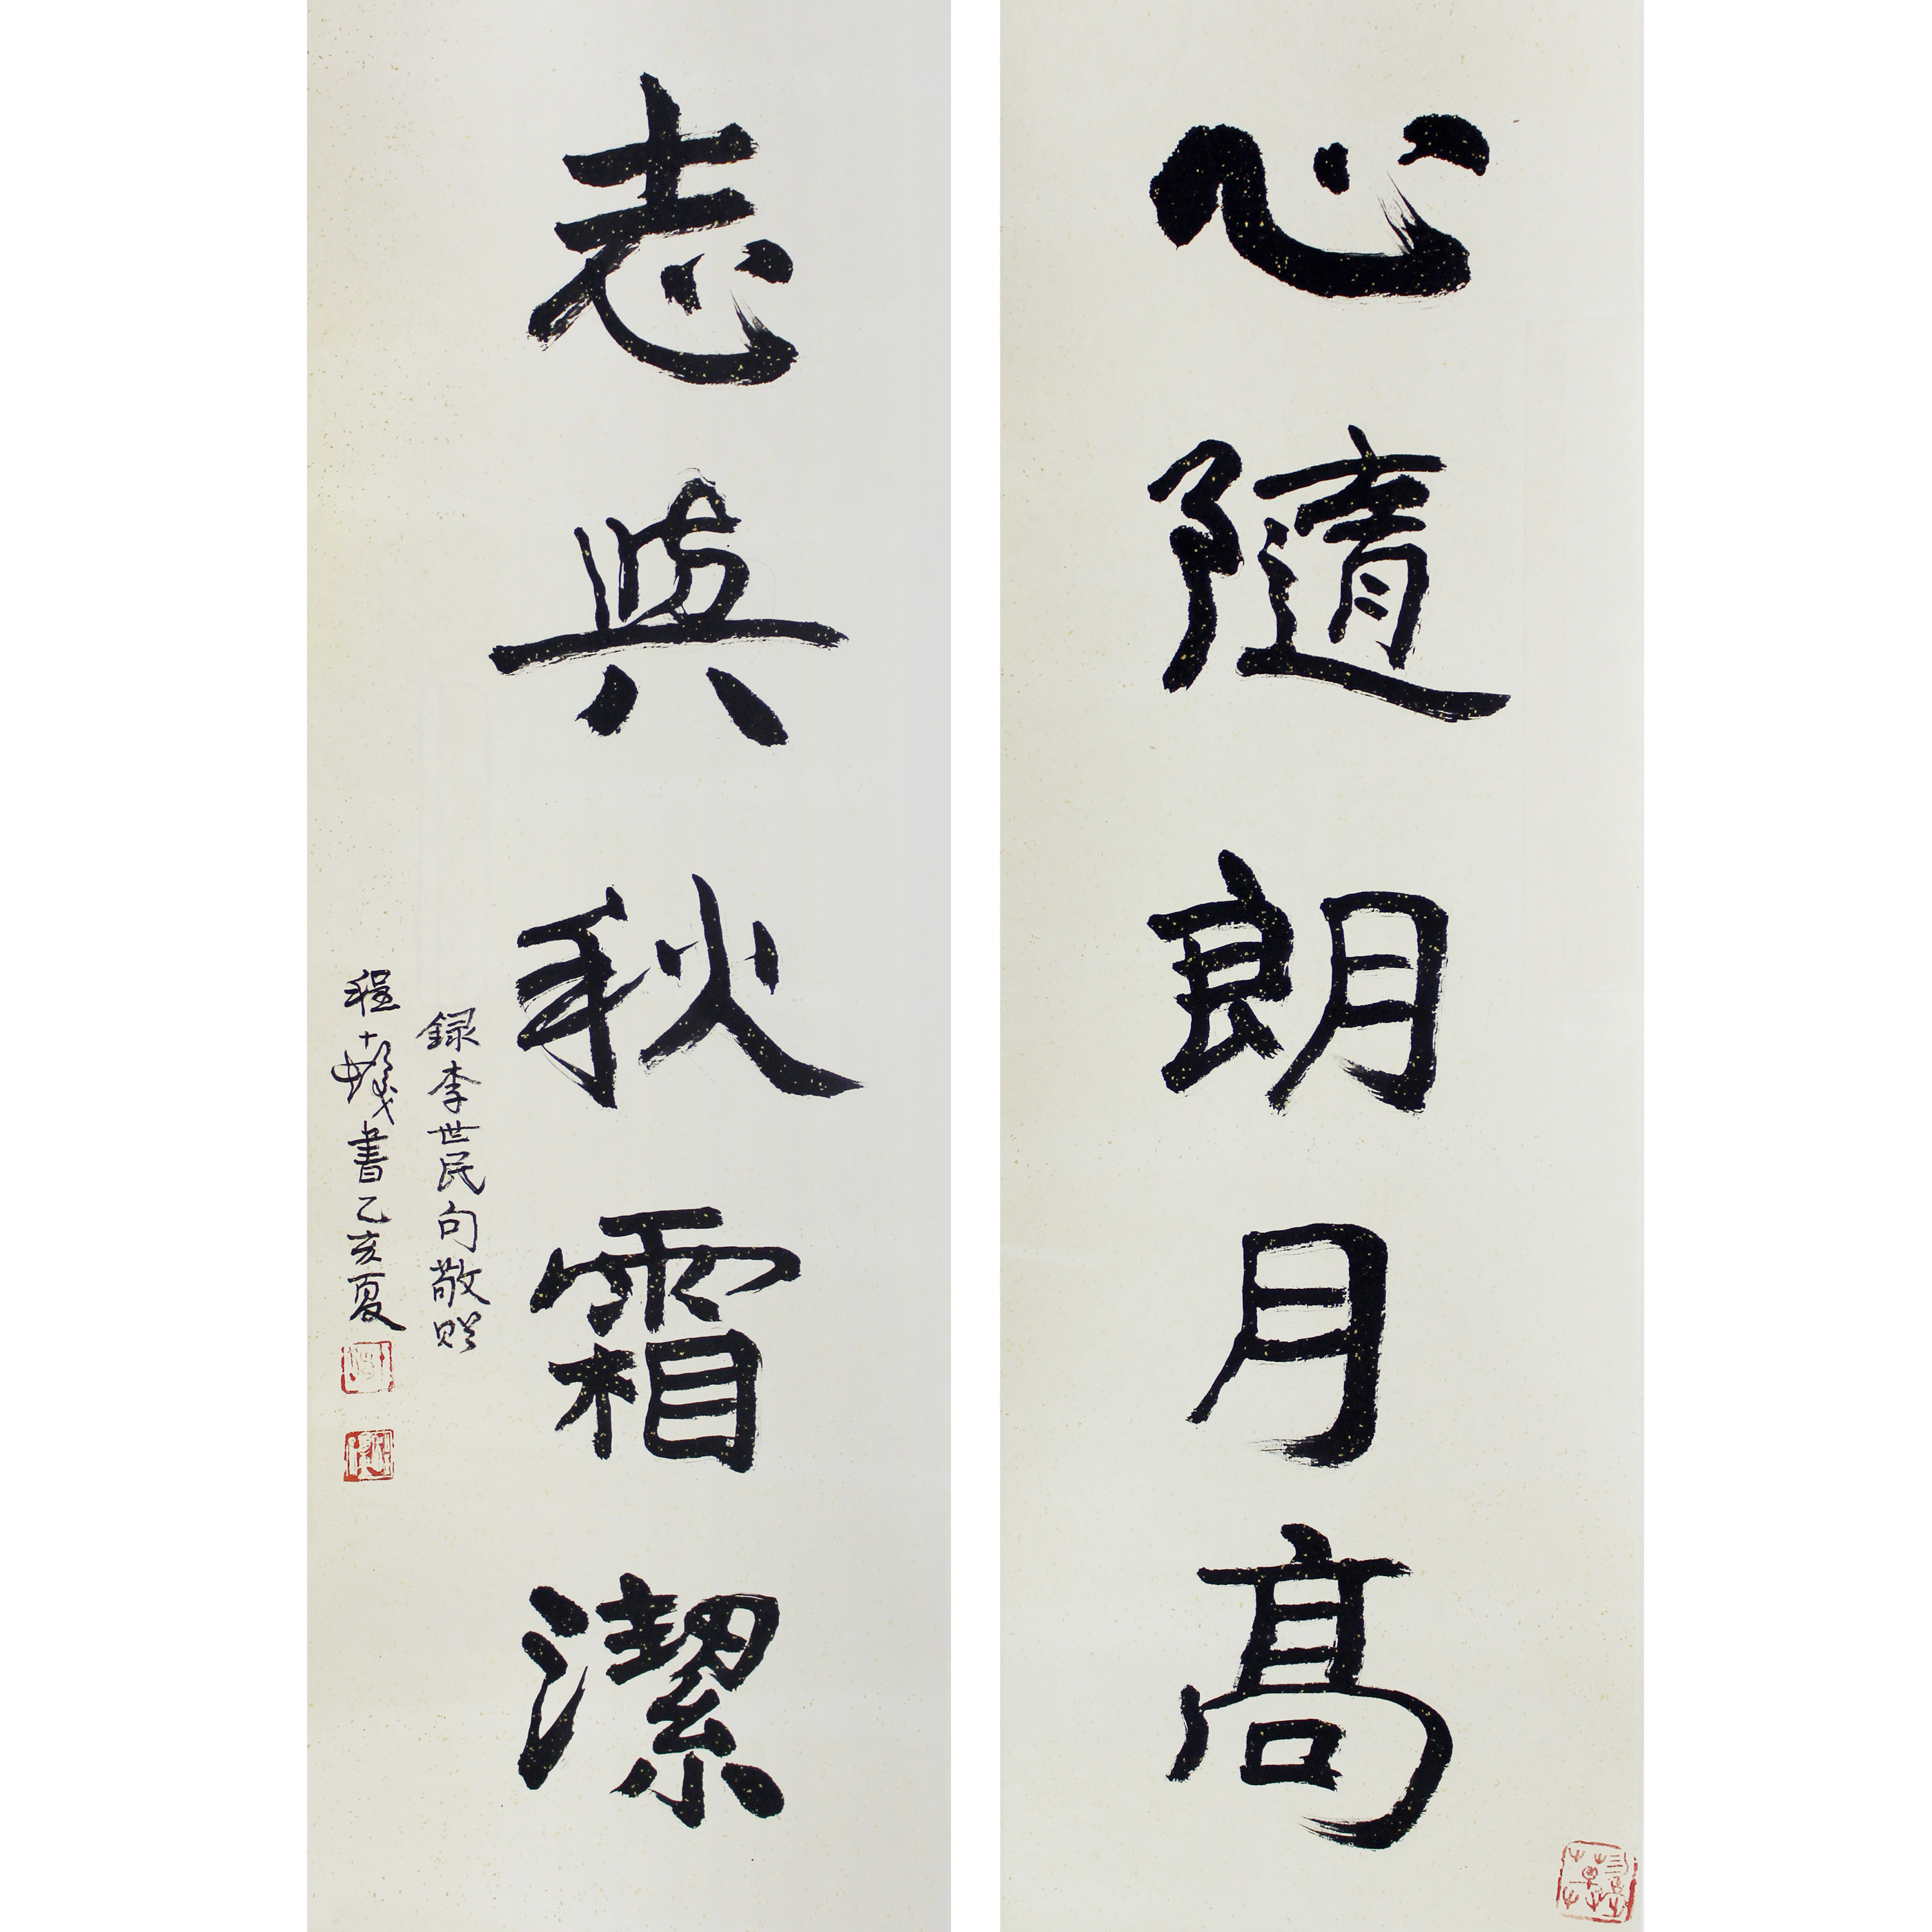 心隨朗月高
志與秋霜潔
録李世民句敬贈
程十髮書乙亥夏